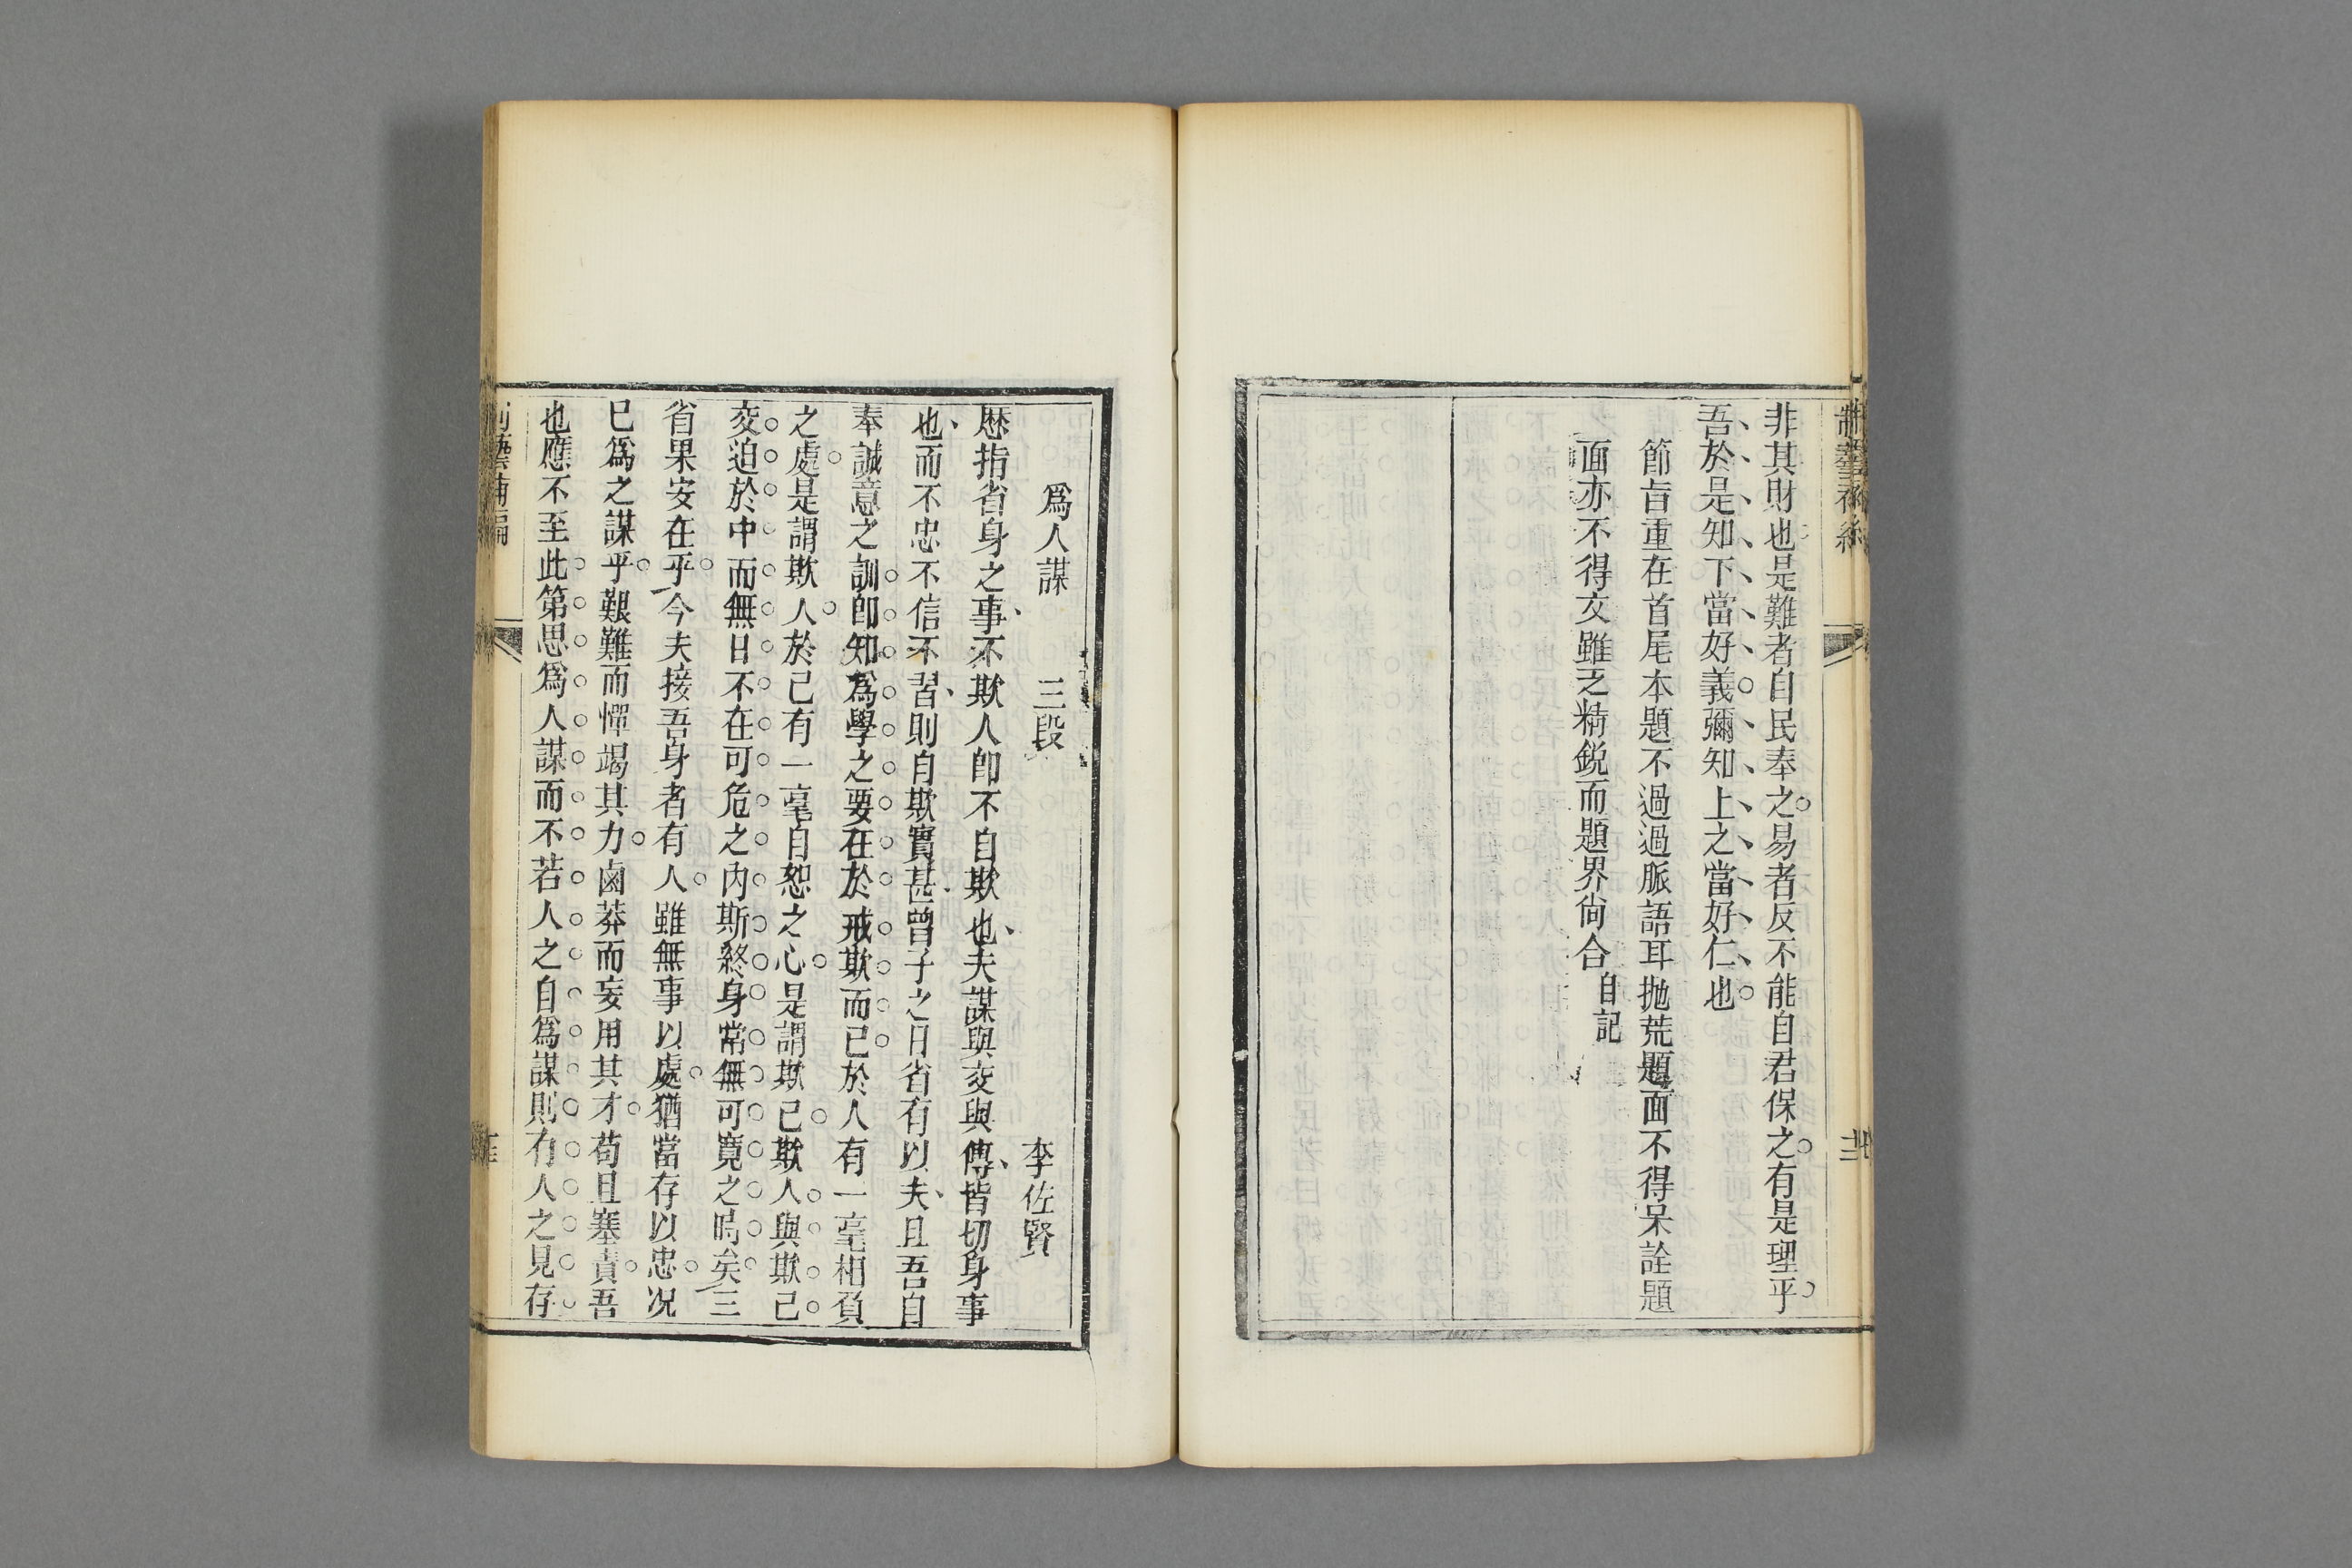 非其財也是難者自民奉之易者反不能自君保之有是理乎
吾於是知下當好義彌知上之當好仁也
節旨重在首尾本題不過過脈語耳拋荒題面不得呆詮題
面亦不得文雖乏精銳而題界尙合
自記
爲人謀 三段 李佐賢
歷指省身之事不欺人卽不自欺也夫謀與交與傳皆切身事
也而不忠不信不習則自欺實甚曾子之日省有以夫且吾自
奉誠意之訓卽知爲學之要在於戒欺而已於人有一毫相負
之處是謂欺人於己有一毫自恕之心是謂欺己欺人與欺己
交迫於中而無日不在可危之內斯終身常無可寬之時矣三
省果安在乎今夫接吾身者有人雖無事以處猶當存以忠况
已爲之謀乎艱難而憚竭其力鹵莽而妄用其才苟且塞責吾
也應不至此第思爲人謀而不若人之自爲謀則有人之見存